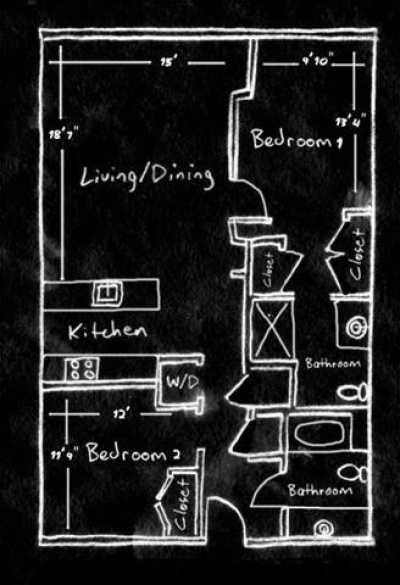 15'
9'10"
18'7"
13'4"
Bedroom 1
Living/Dining
Closet
Closet
Kitchen
Bathroom
W/D
12'
11'9"
Bedroom 2
Closet
Bathroom